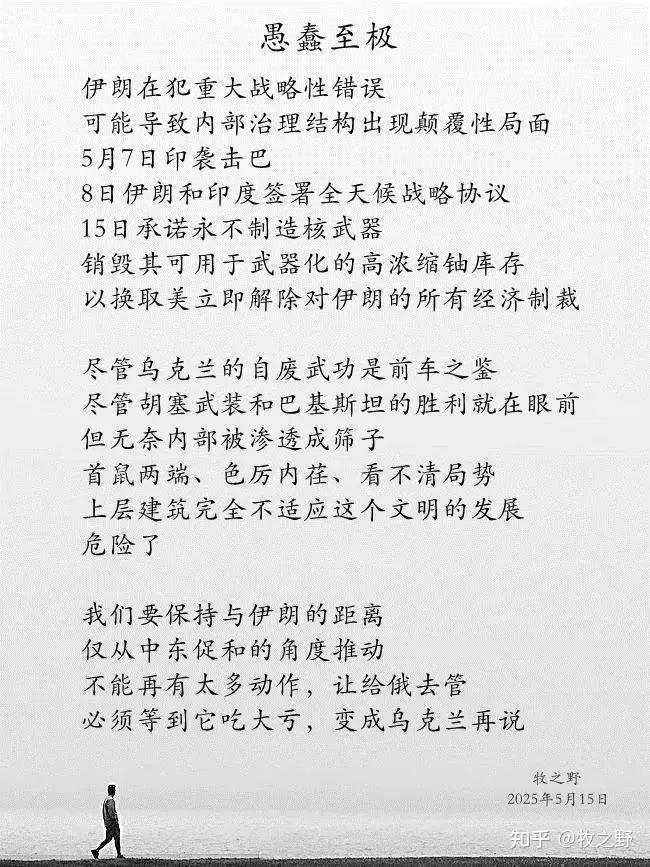 愚蠢至极
伊朗在犯重大战略性错误
可能导致内部治理结构出现颠覆性局面
5月7日印袭击巴
8日伊朗和印度签署全天候战略协议
15日承诺永不制造核武器
销毁其可用于武器化的高浓缩铀库存
以换取美立即解除对伊朗的所有经济制裁
尽管乌克兰的自废武功是前车之鉴
尽管胡塞武装和巴基斯坦的胜利就在眼前
但无奈内部被渗透成筛子
首鼠两端、色厉内荏、看不清局势
上层建筑完全不适应这个文明的发展
危险了
我们要保持与伊朗的距离
仅从中东促和的角度推动
不能再有太多动作，让给俄去管
必须等到它吃大亏，变成乌克兰再说
牧之野
2025年5月15日
知乎 @牧之野